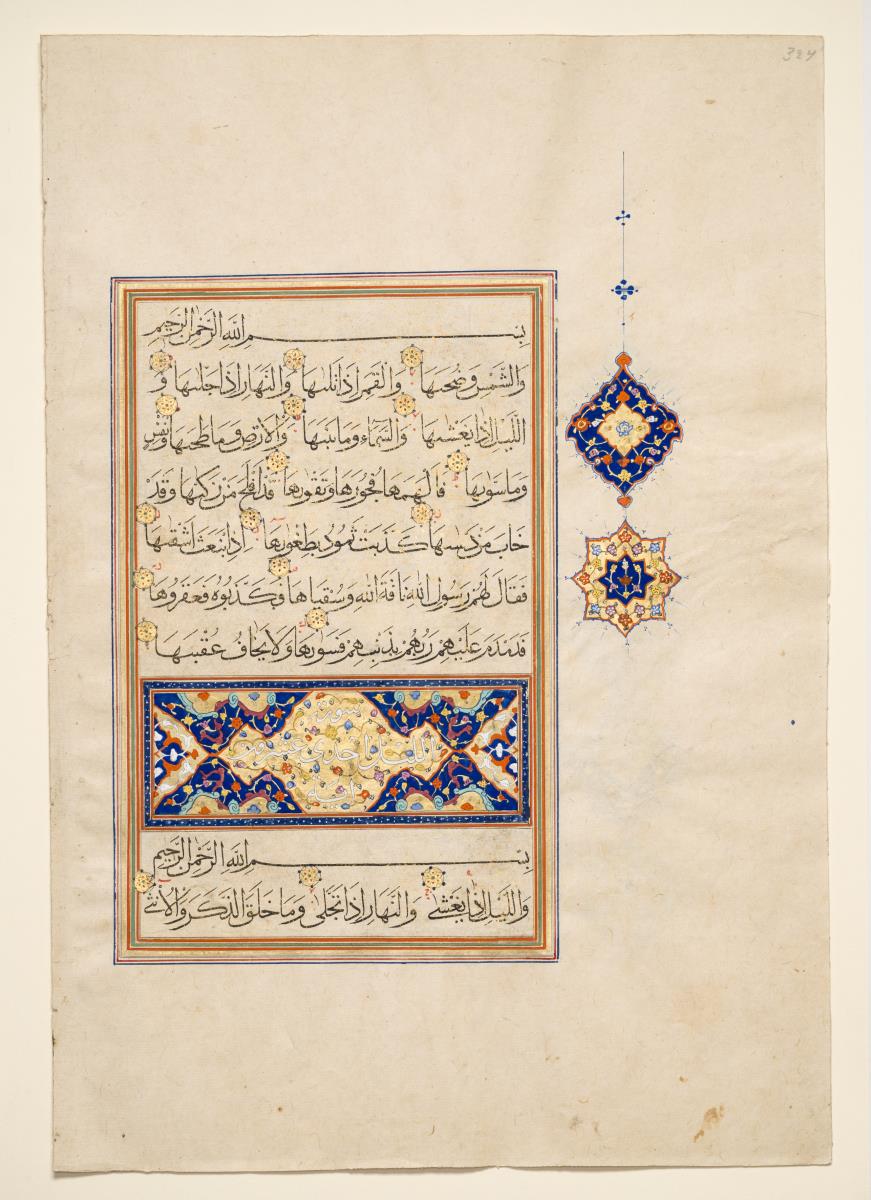 324
بِسْمِ اللهِ الرَّحْمٰنِ الرَّحِيمِ
وَالشَّمْسِ وَضُحٰىهَا وَالْقَمَرِ اِذَا تَلٰىهَا وَالنَّهَارِ اِذَا جَلّٰىهَا وَ
اللَّيْلِ اِذَا يَغْشٰىهَا وَالسَّمَاءِ وَمَا بَنٰىهَا وَالْاَرْضِ وَمَا طَحٰىهَا وَنَفْسٍ
وَمَا سَوّٰىهَا فَاَلْهَمَهَا فُجُورَهَا وَتَقْوٰىهَا قَدْ اَفْلَحَ مَنْ زَكّٰىهَا وَقَدْ
خَابَ مَنْ دَسّٰىهَا كَذَّبَتْ ثَمُودُ بِطَغْوٰىهَا اِذِ انْبَعَثَ اَشْقٰىهَا
فَقَالَ لَهُمْ رَسُولُ اللهِ نَاقَةَ اللهِ وَسُقْيَاهَا فَكَذَّبُوهُ فَعَقَرُوهَا
فَدَمْدَمَ عَلَيْهِمْ رَبُّهُمْ بِذَنْبِهِمْ فَسَوّٰىهَا وَلَا يَخَافُ عُقْبٰىهَا
سورة
الليل احدى عشرون
اية
بِسْمِ اللهِ الرَّحْمٰنِ الرَّحِيمِ
وَاللَّيْلِ اِذَا يَغْشٰى وَالنَّهَارِ اِذَا تَجَلّٰى وَمَا خَلَقَ الذَّكَرَ وَالْاُنْثٰى